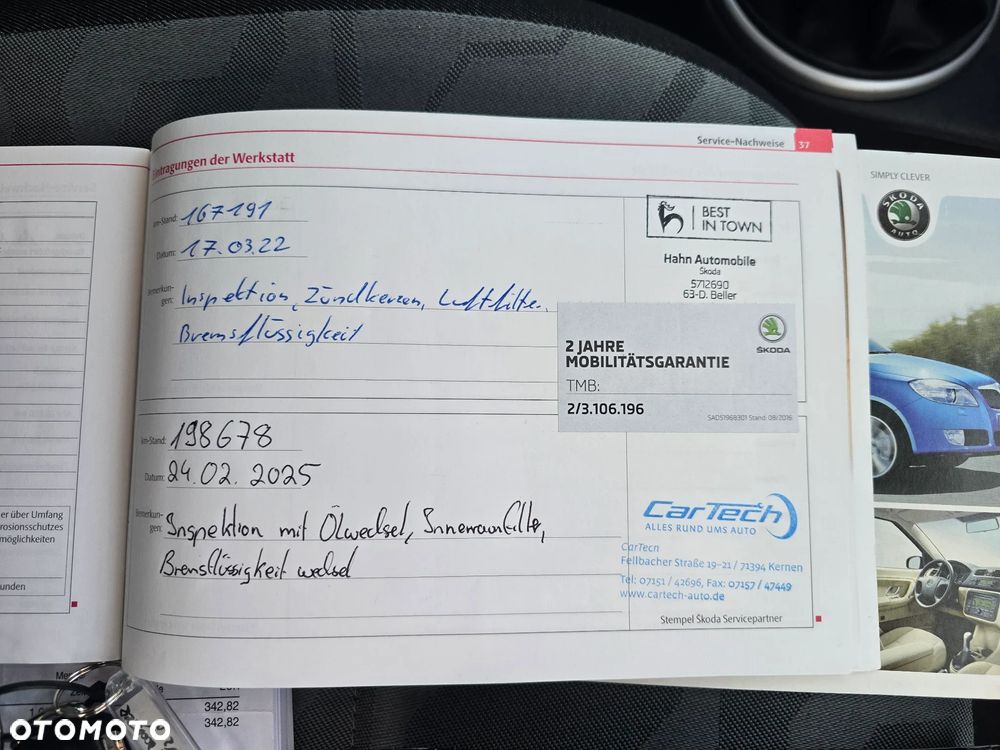 Service-Nachweise 37
Eintragungen der Werkstatt
km-Stand: 167191
Datum: 17.03.22
Bemerkun-
gen: Inspektion, Zündkerzen, Luftfilter,
Bremsflüssigkeit
BEST
IN TOWN
Hahn Automobile
Skoda
5712690
63-D. Beller
2 JAHRE
MOBILITÄTSGARANTIE
TMB:
2/3.106.196
ŠKODA
SAD51968301 Stand: 08/2016
km-Stand: 198678
Datum: 24.02.2025
Bemerkun-
gen: Inspektion mit Ölwechsel, Innenraumfilter,
Bremsflüssigkeit wechsel
CarTech
ALLES RUND UMS AUTO
CarTech
Fellbacher Straße 19-21 / 71394 Kernen
Tel: 07151 / 42696, Fax: 07157 / 47449
www.cartech-auto.de
Stempel Škoda Servicepartner
er über Umfang
rosionsschutzes
möglichkeiten
unden
SIMPLY CLEVER
ŠKODA
AUTO
342,82
342,82
OTOMOTO